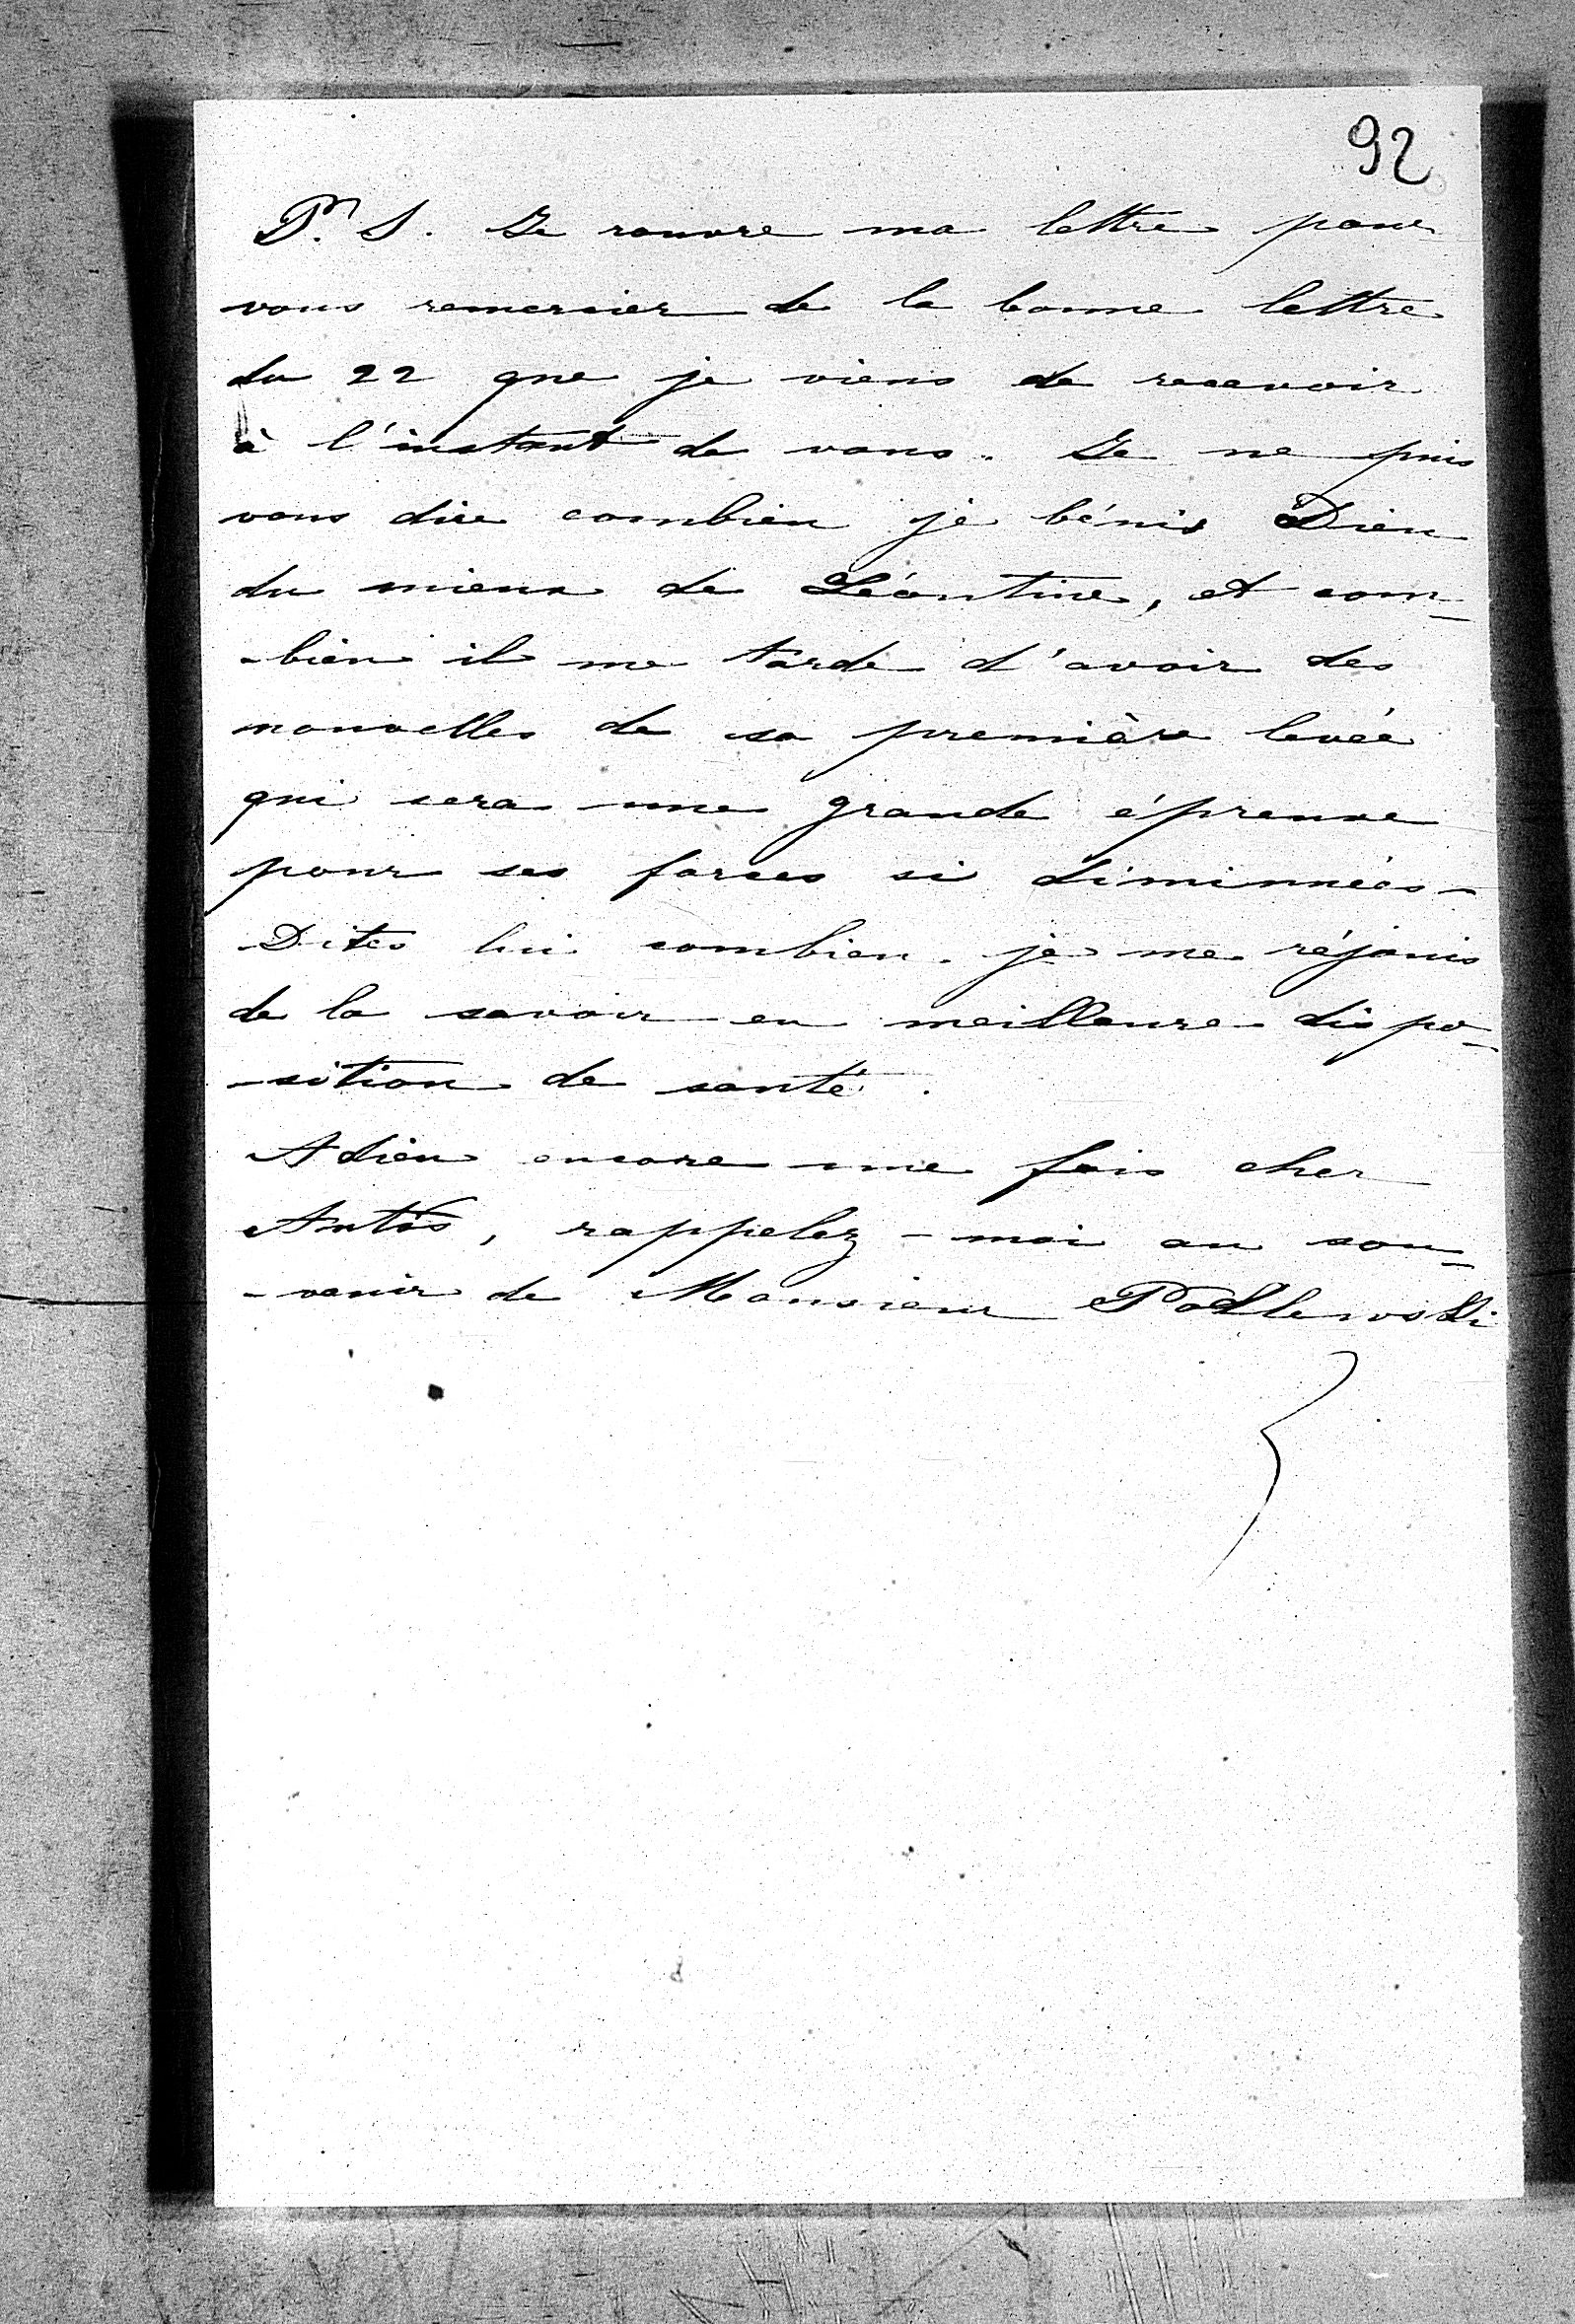 92
P. S. Je rouvre ma lettre pour
vous remercier de la bonne lettre
du 22 que je viens de recevoir
à l'instant de vous. Je ne puis
vous dire combien je bénis Dieu
du mieux de Léontine, et com-
-bien il me tarde d'avoir des
nouvelles de sa première levée
qui sera une grande épreuve
pour ses forces si diminuées -
Dites lui combien je me réjouis
de la savoir en meilleure dispo-
-sition de santé.
Adieu encore une fois cher
Antós, rappelez-moi au sou-
-venir de Monsieur Podlewski